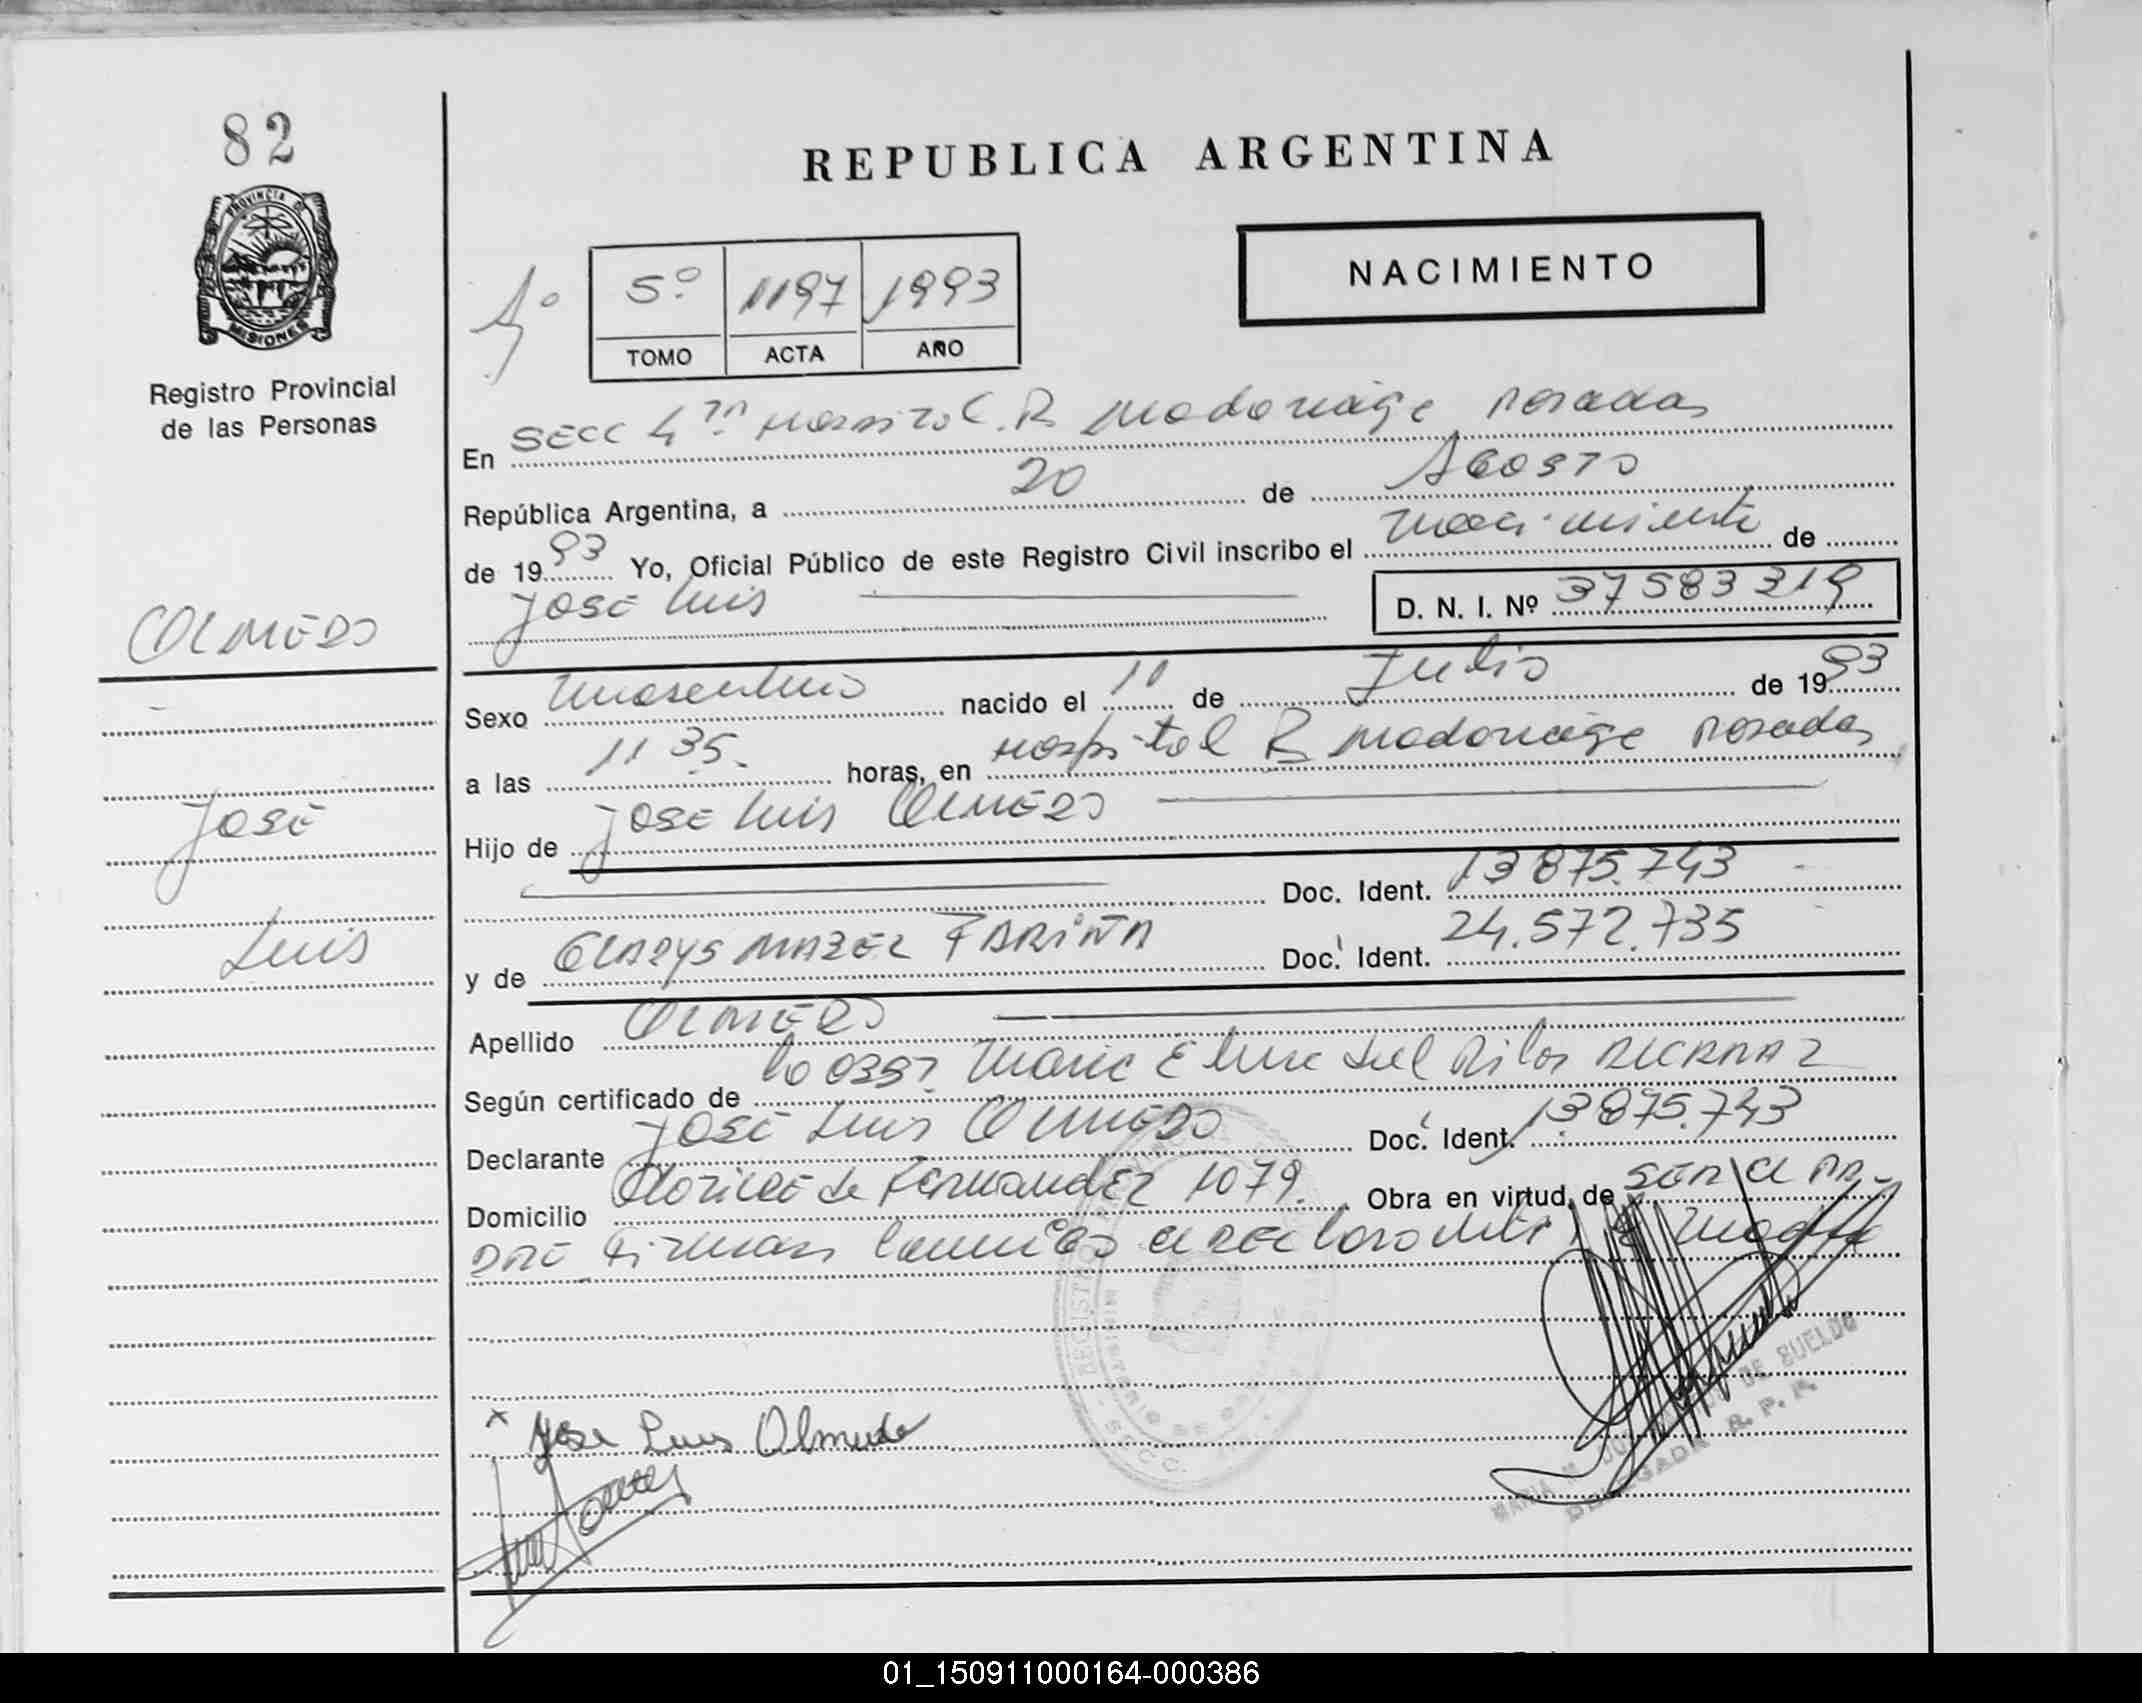 82
PROVINCIA DE
MISIONES
Registro Provincial
de las Personas
REPUBLICA ARGENTINA
NACIMIENTO
5º 1197 1993
TOMO ACTA AÑO
En SECC 4ª Hospital R Madariaga Posadas
República Argentina, a 20 de Agosto
de 1993 Yo, Oficial Público de este Registro Civil inscribo el nacimiento de
José Luis D. N. I. Nº 37583219
OLMEDO
Sexo masculino nacido el 11 de Julio de 1993
a las 11 35. horas, en Hospital R Madariaga Posadas
José
Luis
Hijo de José Luis OLMEDO
Doc. Ident. 13875.743
y de GLADYS MABEL FARIÑA Doc. Ident. 24.572.735
Apellido OLMEDO
Según certificado de Maria del Pilar
Declarante José Luis OLMEDO Doc. Ident. 13.875.743
Domicilio de Fernandez 1079. Obra en virtud de SER EL PA-
DRE Firman el declarante y madre
REGISTRO
MINISTERIO DE
SECC.
Jose Luis Olmedo
MARIA DE SUELDO
DELEGADA R. P. P.
01_150911000164-000386